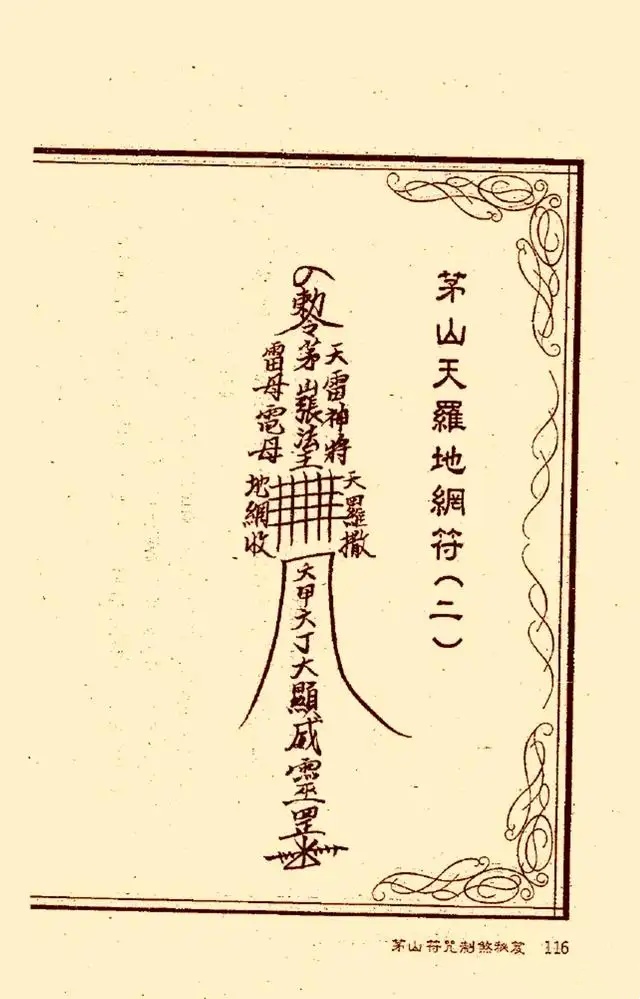 茅山天羅地網符(二)
勅令茅山張法主
天雷神將
雷母電母
天羅撒
地網收
六甲六丁大顯威靈罡
茅山符咒制煞秘笈 116